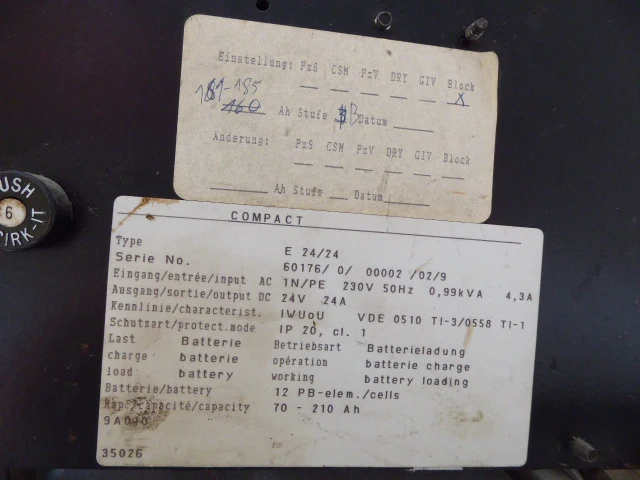 Einstellung: PzS CSM PzV DRY GIV Block
X
181-185
160 Ah Stufe B Datum
Änderung: PzS CSM PzV DRY GIV Block
Ah Stufe Datum
PUSH
6
CIRK-IT
COMPACT
Type E 24/24
Serie No. 60176/ 0/ 00002 /02/9
Eingang/entrée/input AC 1N/PE 230V 50Hz 0,99kVA 4,3A
Ausgang/sortie/output DC 24V 24A
Kennlinie/characterist. IWUoU VDE 0510 TI-3/0558 TI-1
Schutzart/protect.mode IP 20, cl. 1
Last Batterie Betriebsart Batterieladung
charge batterie opération batterie charge
load battery working battery loading
Batterie/battery 12 PB-elem./cells
Kap./capacité/capacity 70 - 210 Ah
35026